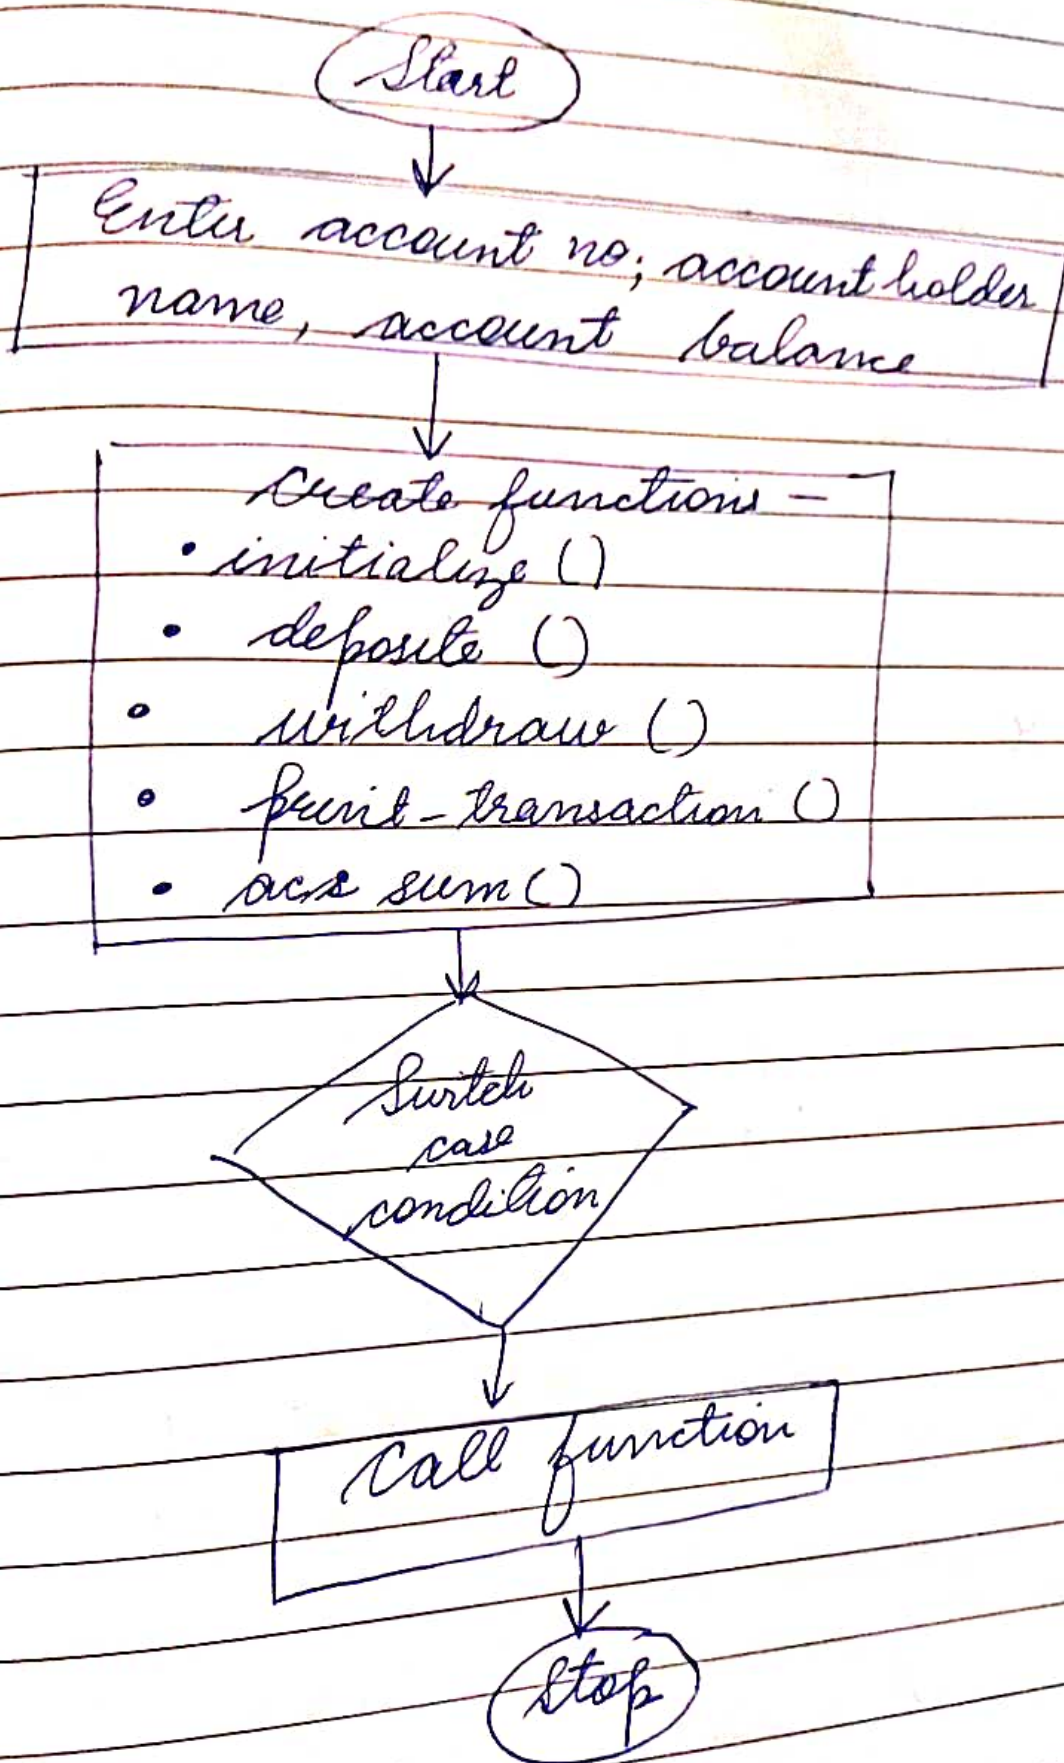 Start
Enter account no; account holder
name, account balance
Create functions -
• initialize ()
• deposite ()
• withdraw ()
• print-transaction ()
• sum ()
Switch
case
condition
Call function
Stop